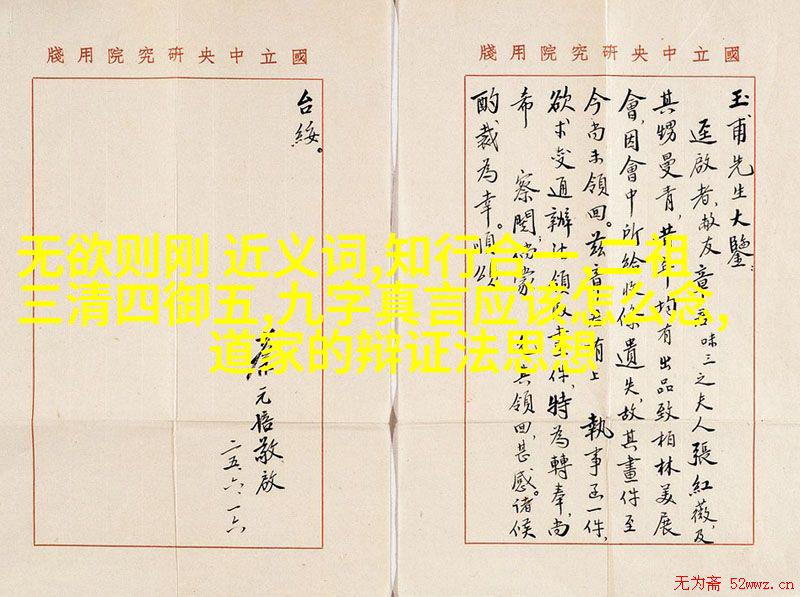 國立中央研究院用牋
玉甫先生大鑒
逕啟者,敝友章君味三之夫人張紅薇,及
其甥曼青,均有出品致柏林美展
會,因會中所給收條遺失,故其畫件至
今尚未領回。茲章有上 執事函一件,
欲求交通辦法領取畫件,特為轉奉,尚
希 察閱,倘蒙 領回,甚感。諸候
酌裁為幸。順頌
國立中央研究院用牋
台綏。
蔡元培敬啟
二五、六、一六
无欲则刚 近义词,知行合一,二祖
三清四御五,九字真言应该怎么念,
道家的辩证法思想
无为斋 52wwz.cn